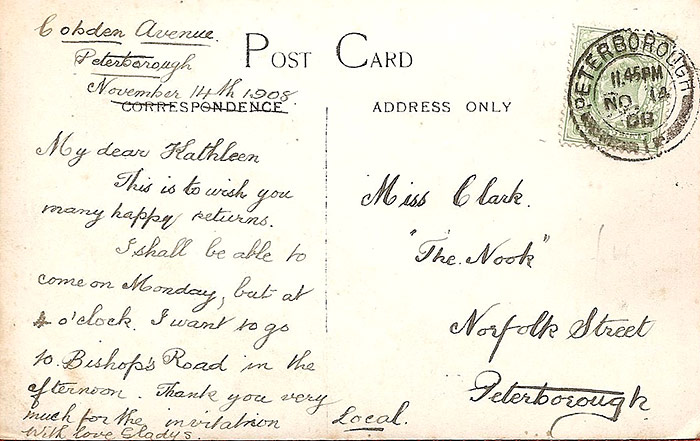 Cobden Avenue.
Peterborough
November 14th 1908
POST CARD
CORRESPONDENCE
ADDRESS ONLY
My dear Kathleen
This is to wish you
many happy returns.
I shall be able to
come on Monday, but at
4 o'clock. I want to go
to Bishop's Road in the
afternoon. Thank you very
much for the invitation
With love Gladys.
Miss Clark.
"The Nook"
Norfolk Street
Peterborough
Local.
PETERBOROUGH
11.45PM
NO 14
08